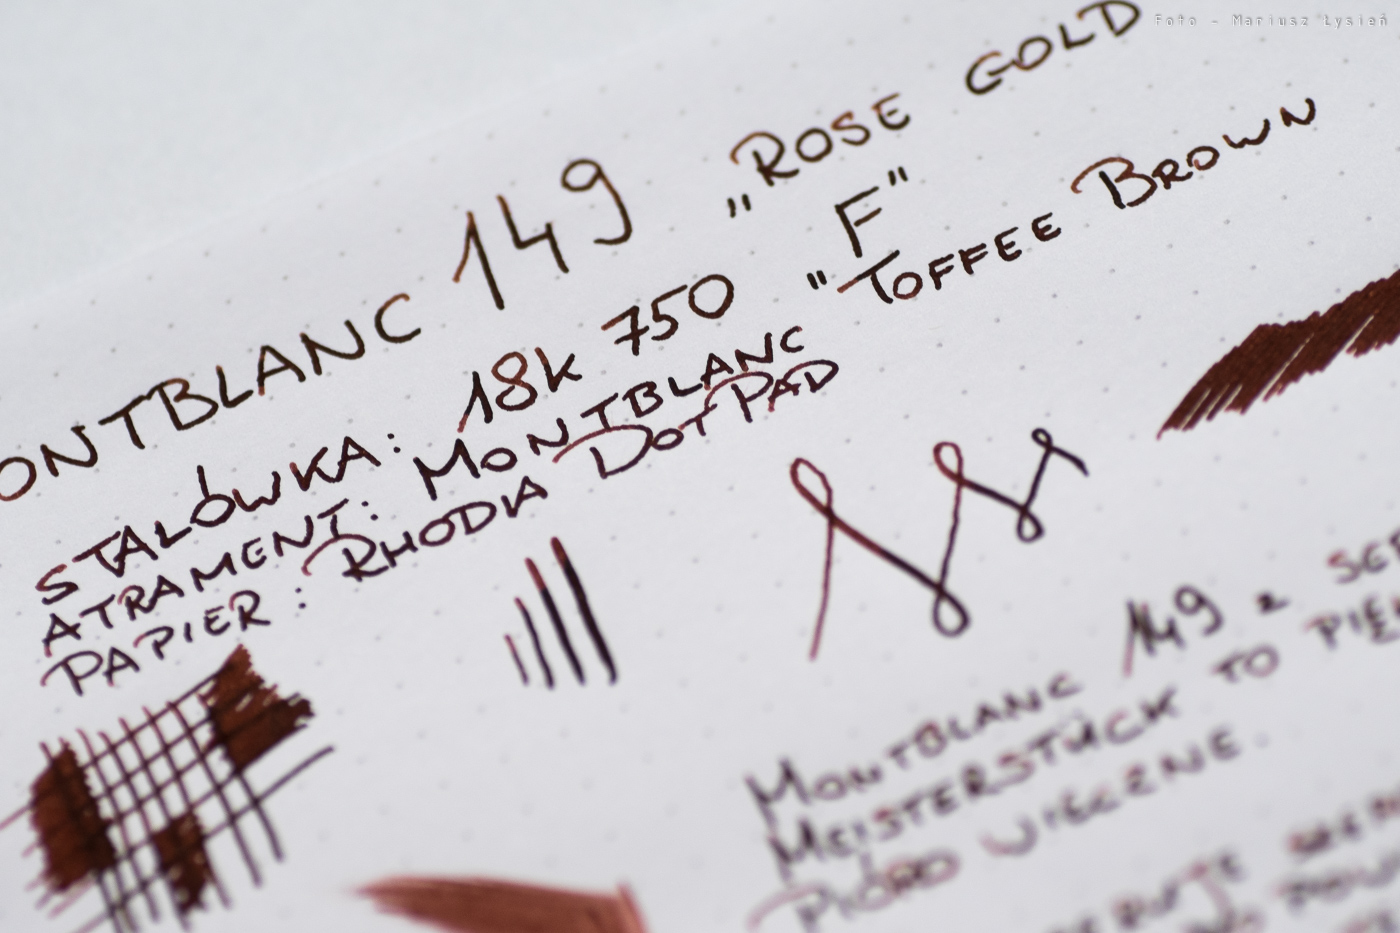 Foto - Mariusz Łysień
ONTBLANC 149 „ROSE GOLD
STALÓWKA: 18K 750 "F"
ATRAMENT: MONTBLANC "TOFFEE BROWN
PAPIER: RHODIA DOT PAD
MONTBLANC 149 z SER
MEISTERSTÜCK TO PIĘK
PIÓRO WIECZNE.